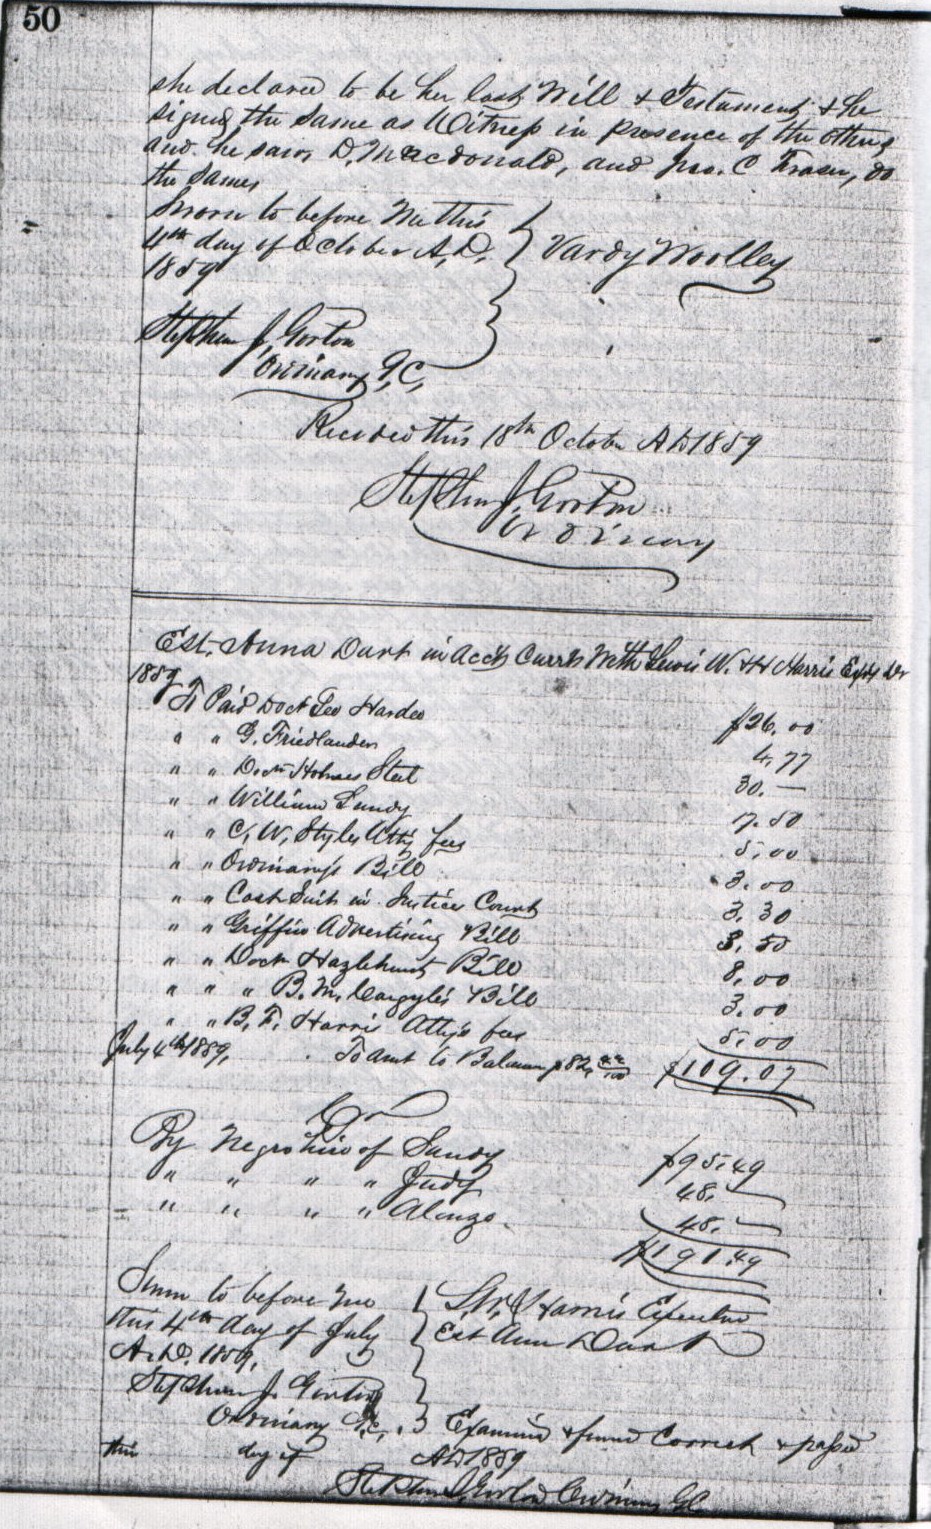 50
she declared to be her last Will & Testament & he
signed the same as Witness in presence of the others
and he saw D, Macdonald, and Jno. C Fraser, do
the same,
Sworn to before Me this
4th day of October A, D,
1859
Vardy Woolley
Stephen J, Gorton
Ordinary G, C,
Recorded this 18th October AD 1859
Stephen J, Gorton
Ordinary
Est, Anna Dart in acct Currt With Lewis W. & H Harris Exrs Dr
1859
To Paid Doct Geo Hardee $26.00
" " G. Friedlander 4,77
" " Doctr Holmes Steel 30.—
" " William Gundy 7.50
" " C, W, Styles Atty fees 5,00
" " Ordinarys Bill 3.00
" " Cost Suit in Justices Court 3,30
" " Griffin Advertising Bill 3.50
" " Doctr Hazlehurst Bill 8,00
" " " B. M, Cargyle's Bill 3.00
" " B, F, Harris Atty's fees 5,00
July 4th 1859, To Amt to Balance $82, 42/100 $109.07
Cr
By Negro hire of Sandy $95.49
" " " " Judy 48.—
" " " " Alonzo 48.—
$191.49
Sworn to before me
this 4th day of July
A.D. 1859,
Harris Executor
Est Ann Dart
Stephen J. Gorton
Ordinary G.C.
Examined & found Correct & passed
this day of AD 1859
Stephen J, Gorton Ordinary GC